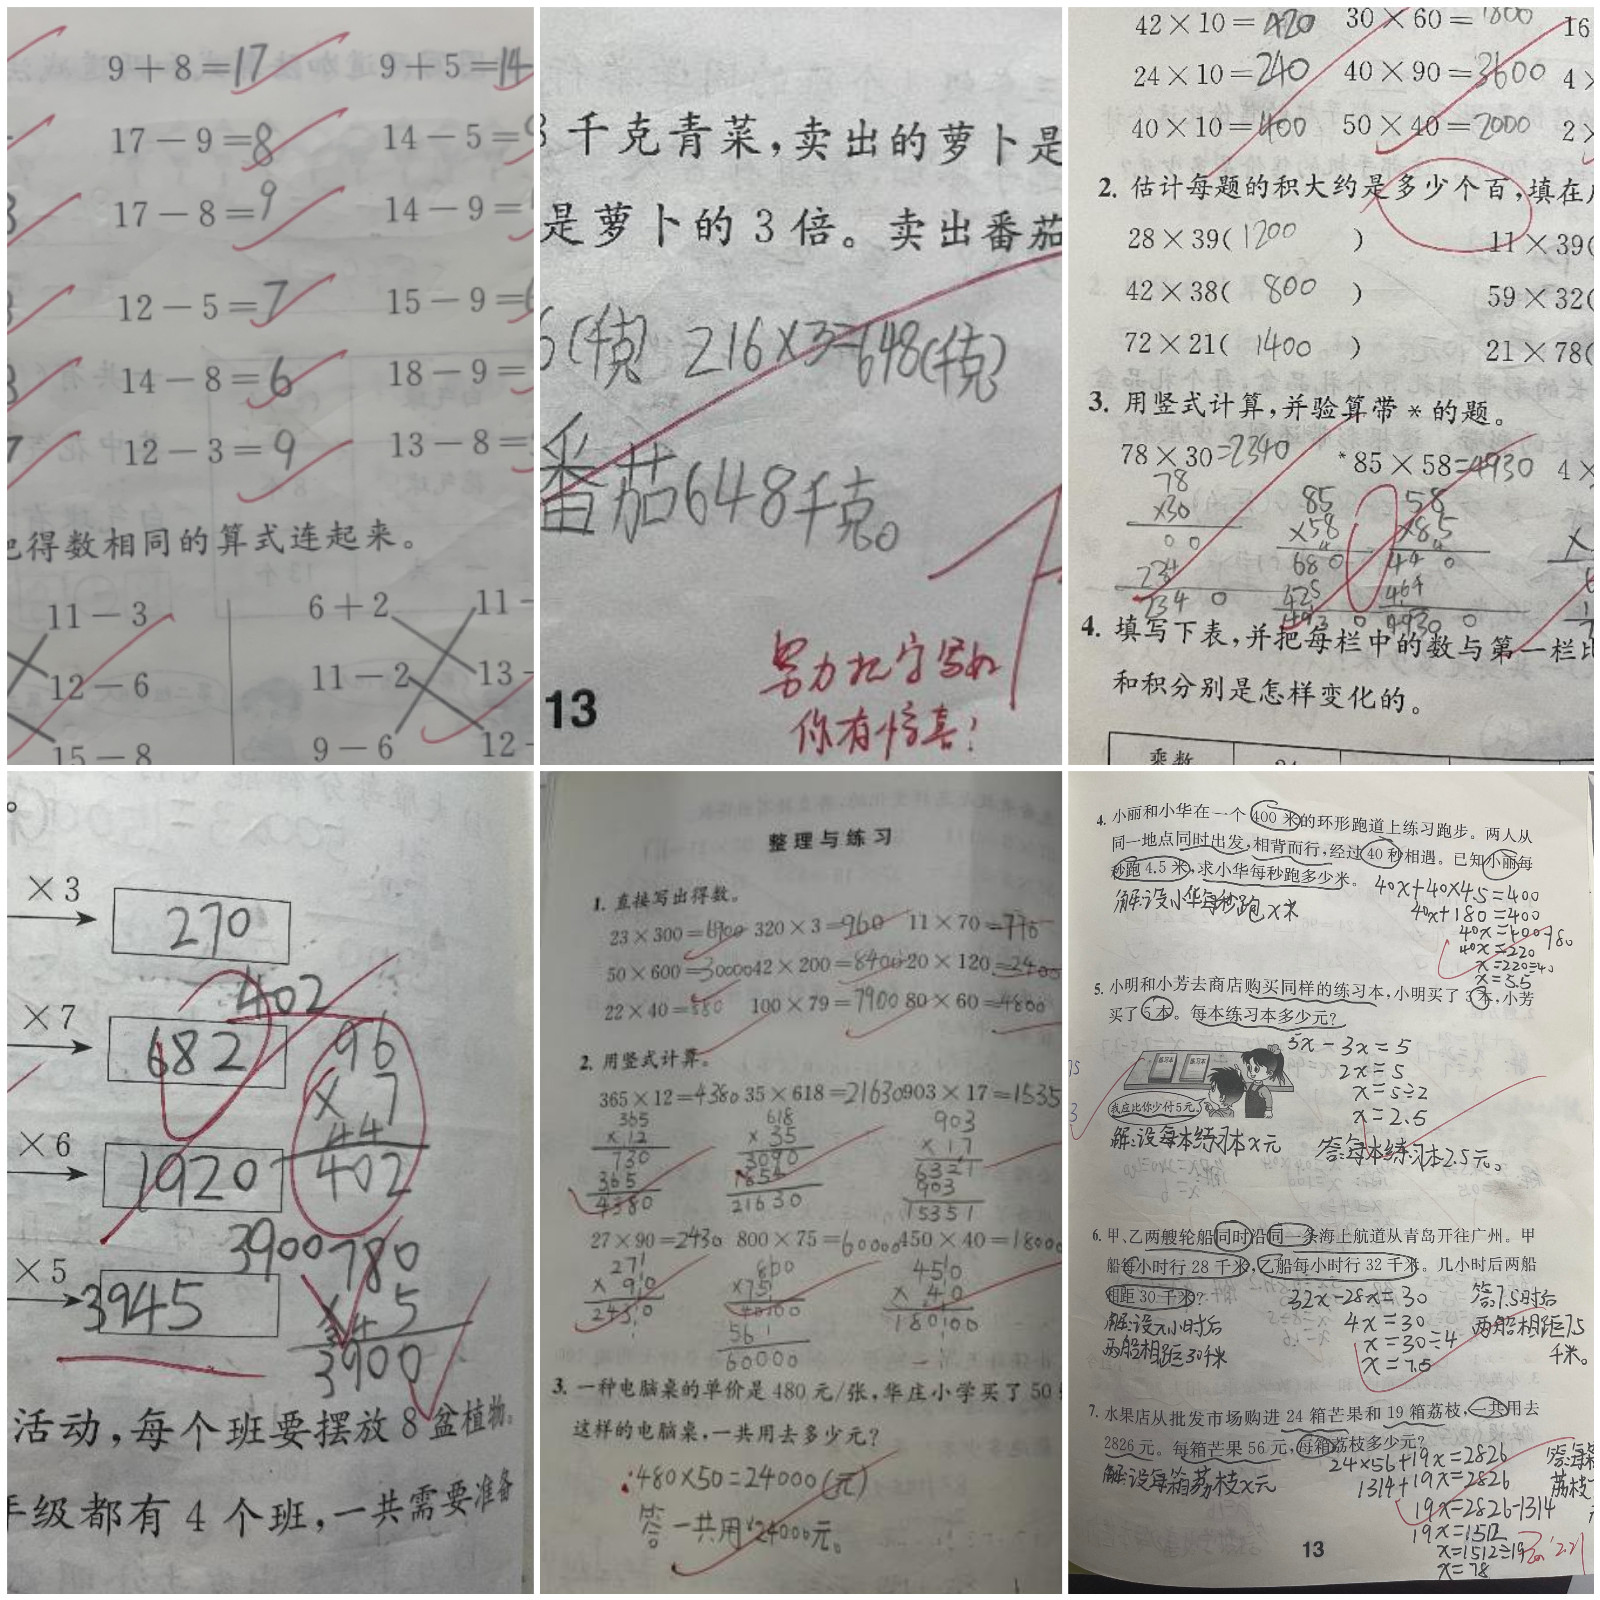 9+8=17 9+5=14
17-9=8 14-5=
17-8=9 14-9=
12-5=7 15-9=6
14-8=6 18-9=
12-3=9 13-8=
把得数相同的算式连起来。
11-3 6+2 11-
12-6 11-2 13-
15-8 9-6 12-
千克青菜，卖出的萝卜是
是萝卜的3倍。卖出番茄
6(千克) 216×3=648(千克)
番茄648千克。
努力把字写好
你有惊喜！
13
42×10=420 30×60=1800 16
24×10=240 40×90=3600 4×
40×10=400 50×40=2000 2×
2. 估计每题的积大约是多少个百，填在
28×39(1200) 11×39(
42×38(800) 59×32(
72×21(1400) 21×78(
3. 用竖式计算，并验算带*的题。
78×30=2340 *85×58=4930 4×
78 85 58
×30 ×58 ×85
00 680
234 425 464
2340 4930 4930
4. 填写下表，并把每栏中的数与第一栏比
和积分别是怎样变化的。
乘数
×3 270
402
×7 682 96
×7
44
402
×6 1920
3900 780
×5 3945 ×5
3900
活动，每个班要摆放8盆植物。
年级都有4个班，一共需要准备
整理与练习
1. 直接写出得数。
23×300=6900 320×3=960 11×70=770
50×600=30000 42×200=8400 20×120=2400
22×40=880 100×79=7900 80×60=4800
2. 用竖式计算。
365×12=4380 35×618=21630 903×17=1535
365 618 903
×12 ×35 ×17
730 3090 6321
365 1854 903
4380 21630 15351
27×90=2430 800×75=60000 450×40=18000
271 800 450
×90 ×75 ×40
2430 180100
561
60000
3. 一种电脑桌的单价是480元/张，华庄小学买了50
这样的电脑桌，一共用去多少元？
480×50=24000(元)
答一共用24000元。
4. 小丽和小华在一个400米的环形跑道上练习跑步。两人从
同一地点同时出发，相背而行，经过40秒相遇。已知小丽每
秒跑4.5米，求小华每秒跑多少米。
解：设小华每秒跑x米
40x+40×4.5=400
40x+180=400
40x=400-180
40x=220
x=220÷40
x=5.5
5. 小明和小芳去商店购买同样的练习本，小明买了3本，小芳
买了5本。每本练习本多少元？
5x-3x=5
2x=5
x=5÷2
x=2.5
练习本 练习本
我应比你少付5元。
解：设每本练习本x元 答：每本练习本2.5元。
6. 甲、乙两艘轮船同时沿同一条海上航道从青岛开往广州。甲
船每小时行28千米，乙船每小时行32千米。几小时后两船
相距30千米？
解：设x小时后
两船相距30千米
32x-28x=30
4x=30
x=30÷4
x=7.5
答：7.5时后
两船相距75
千米。
7. 水果店从批发市场购进24箱芒果和19箱荔枝，一共用去
2826元。每箱芒果56元，每箱荔枝多少元？
解：设每箱荔枝x元
24×56+19x=2826
1314+19x=2826
19x=2826-1314
19x=1512
x=1512÷19
x=78
答：每箱
荔枝
13